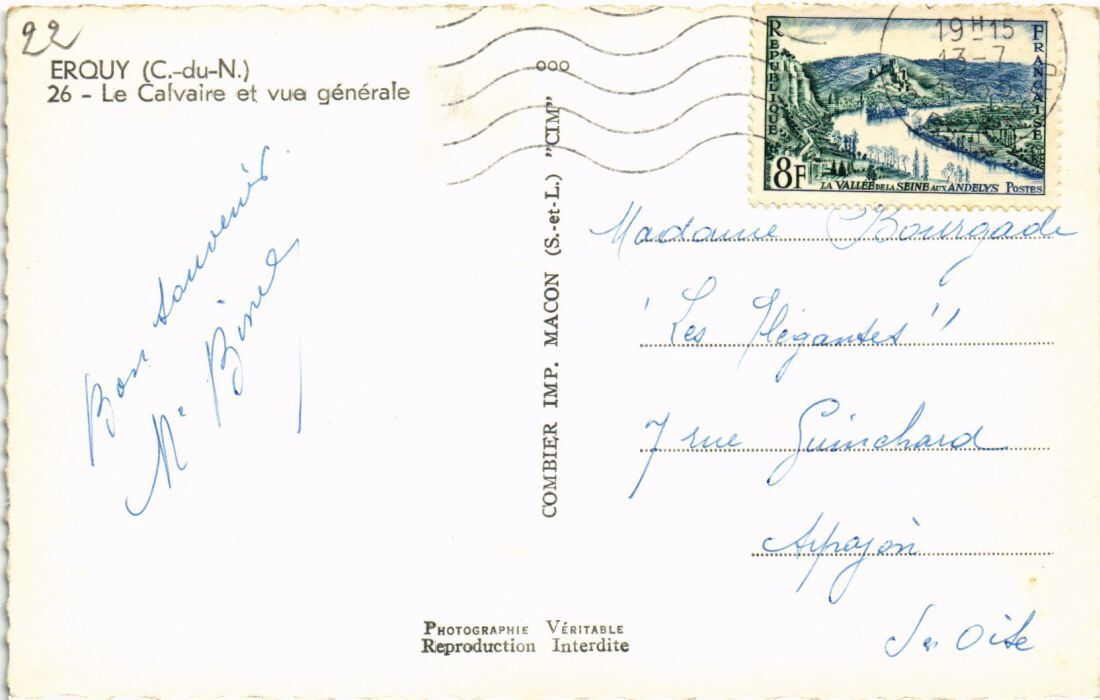 22
ERQUY (C.-du-N.)
26 - Le Calvaire et vue générale
Bon souvenir
COMBIER IMP. MACON (S.-et-L.) "CIM"
PHOTOGRAPHIE VÉRITABLE
Reproduction Interdite
19H15
13-7
REPUBLIQUE
FRANÇAISE
8F
LA VALLÉE DE LA SEINE AUX ANDELYS POSTES
Madame Bourgade
"Les Elégantes"
7 rue Guinchard
Arpajon
Oise